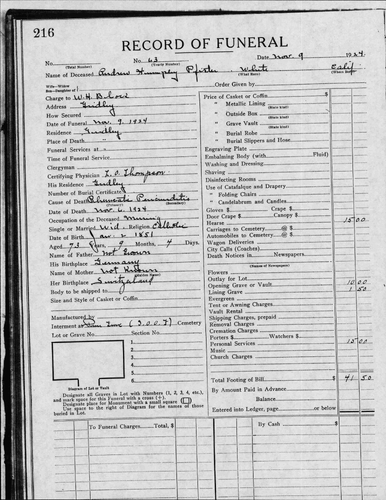 216
RECORD OF FUNERAL
No. No. 63 Date Nov. 9 1924
(Total Number) (Yearly Number)
Name of Deceased Andrew Humphry Pfister White Calif
(What Race) (Where Born)
Charge to W.H. Order Given by
Address Gridley Price of Casket or Coffin
How Secured " Metallic Lining
(State Kind)
Date of Funeral Nov. 9, 1924 " Outside Box
(State Kind)
Residence Gridley " Grave Vault
(State Kind)
Place of Death " Burial Robe
Funeral Services at " Burial Slippers and Hose
Time of Funeral Service Engraving Plate
Clergyman Embalming Body (with Fluid)
Certifying Physician L. L. Thompson Washing and Dressing
His Residence Gridley Shaving
Number of Burial Certificate Disinfecting Rooms
Cause of Death Rheumatic Pericarditis Use of Catafalque and Drapery
Date of Death Nov. 6, 1924 " Folding Chairs
Occupation of the Deceased Mining " Candelabrum and Candles
Single or Married Wid. Religion Catholic Gloves $ Crape $
Date of Birth 2 1851 Door Crape $ Canopy $
Aged 73 Years, 9 Months, 4 Days Hearse 15 00
Name of Father not known Carriages to Cemetery @ $
His Birthplace Germany Automobiles to Cemetery @ $
Name of Mother not known Wagon Deliveries
Her Birthplace Switzerland Death Notices in Newspapers
Body to be shipped to Flowers
Size and Style of Casket or Coffin Outlay for Lot
Opening Grave or Vault 10 00
Lining Grave 1 50
Evergreen
Tent or Awning Charges
Vault Rental
Manufactured by Shipping Charges, prepaid
Interment at (I.O.O.F.) Cemetery Removal Charges
Lot or Grave No. Section No. Cremation Charges
Porters $ Watchers $
Personal Services 15 00
Music
Church Charges
1
2
3
4
5
6
Diagram of Lot or Vault
Total Footing of Bill $ 41 50
Designate all Graves in Lot with Numbers (1, 2, 3, 4, etc.),
and mark space for this Funeral with a cross (+). By Amount Paid in Advance
Designate place for Monument with a small square
Use space to the right of Diagram for the names of those Balance
buried in Lot. Entered into Ledger, page or below
To Funeral Charges Total, $ By Cash